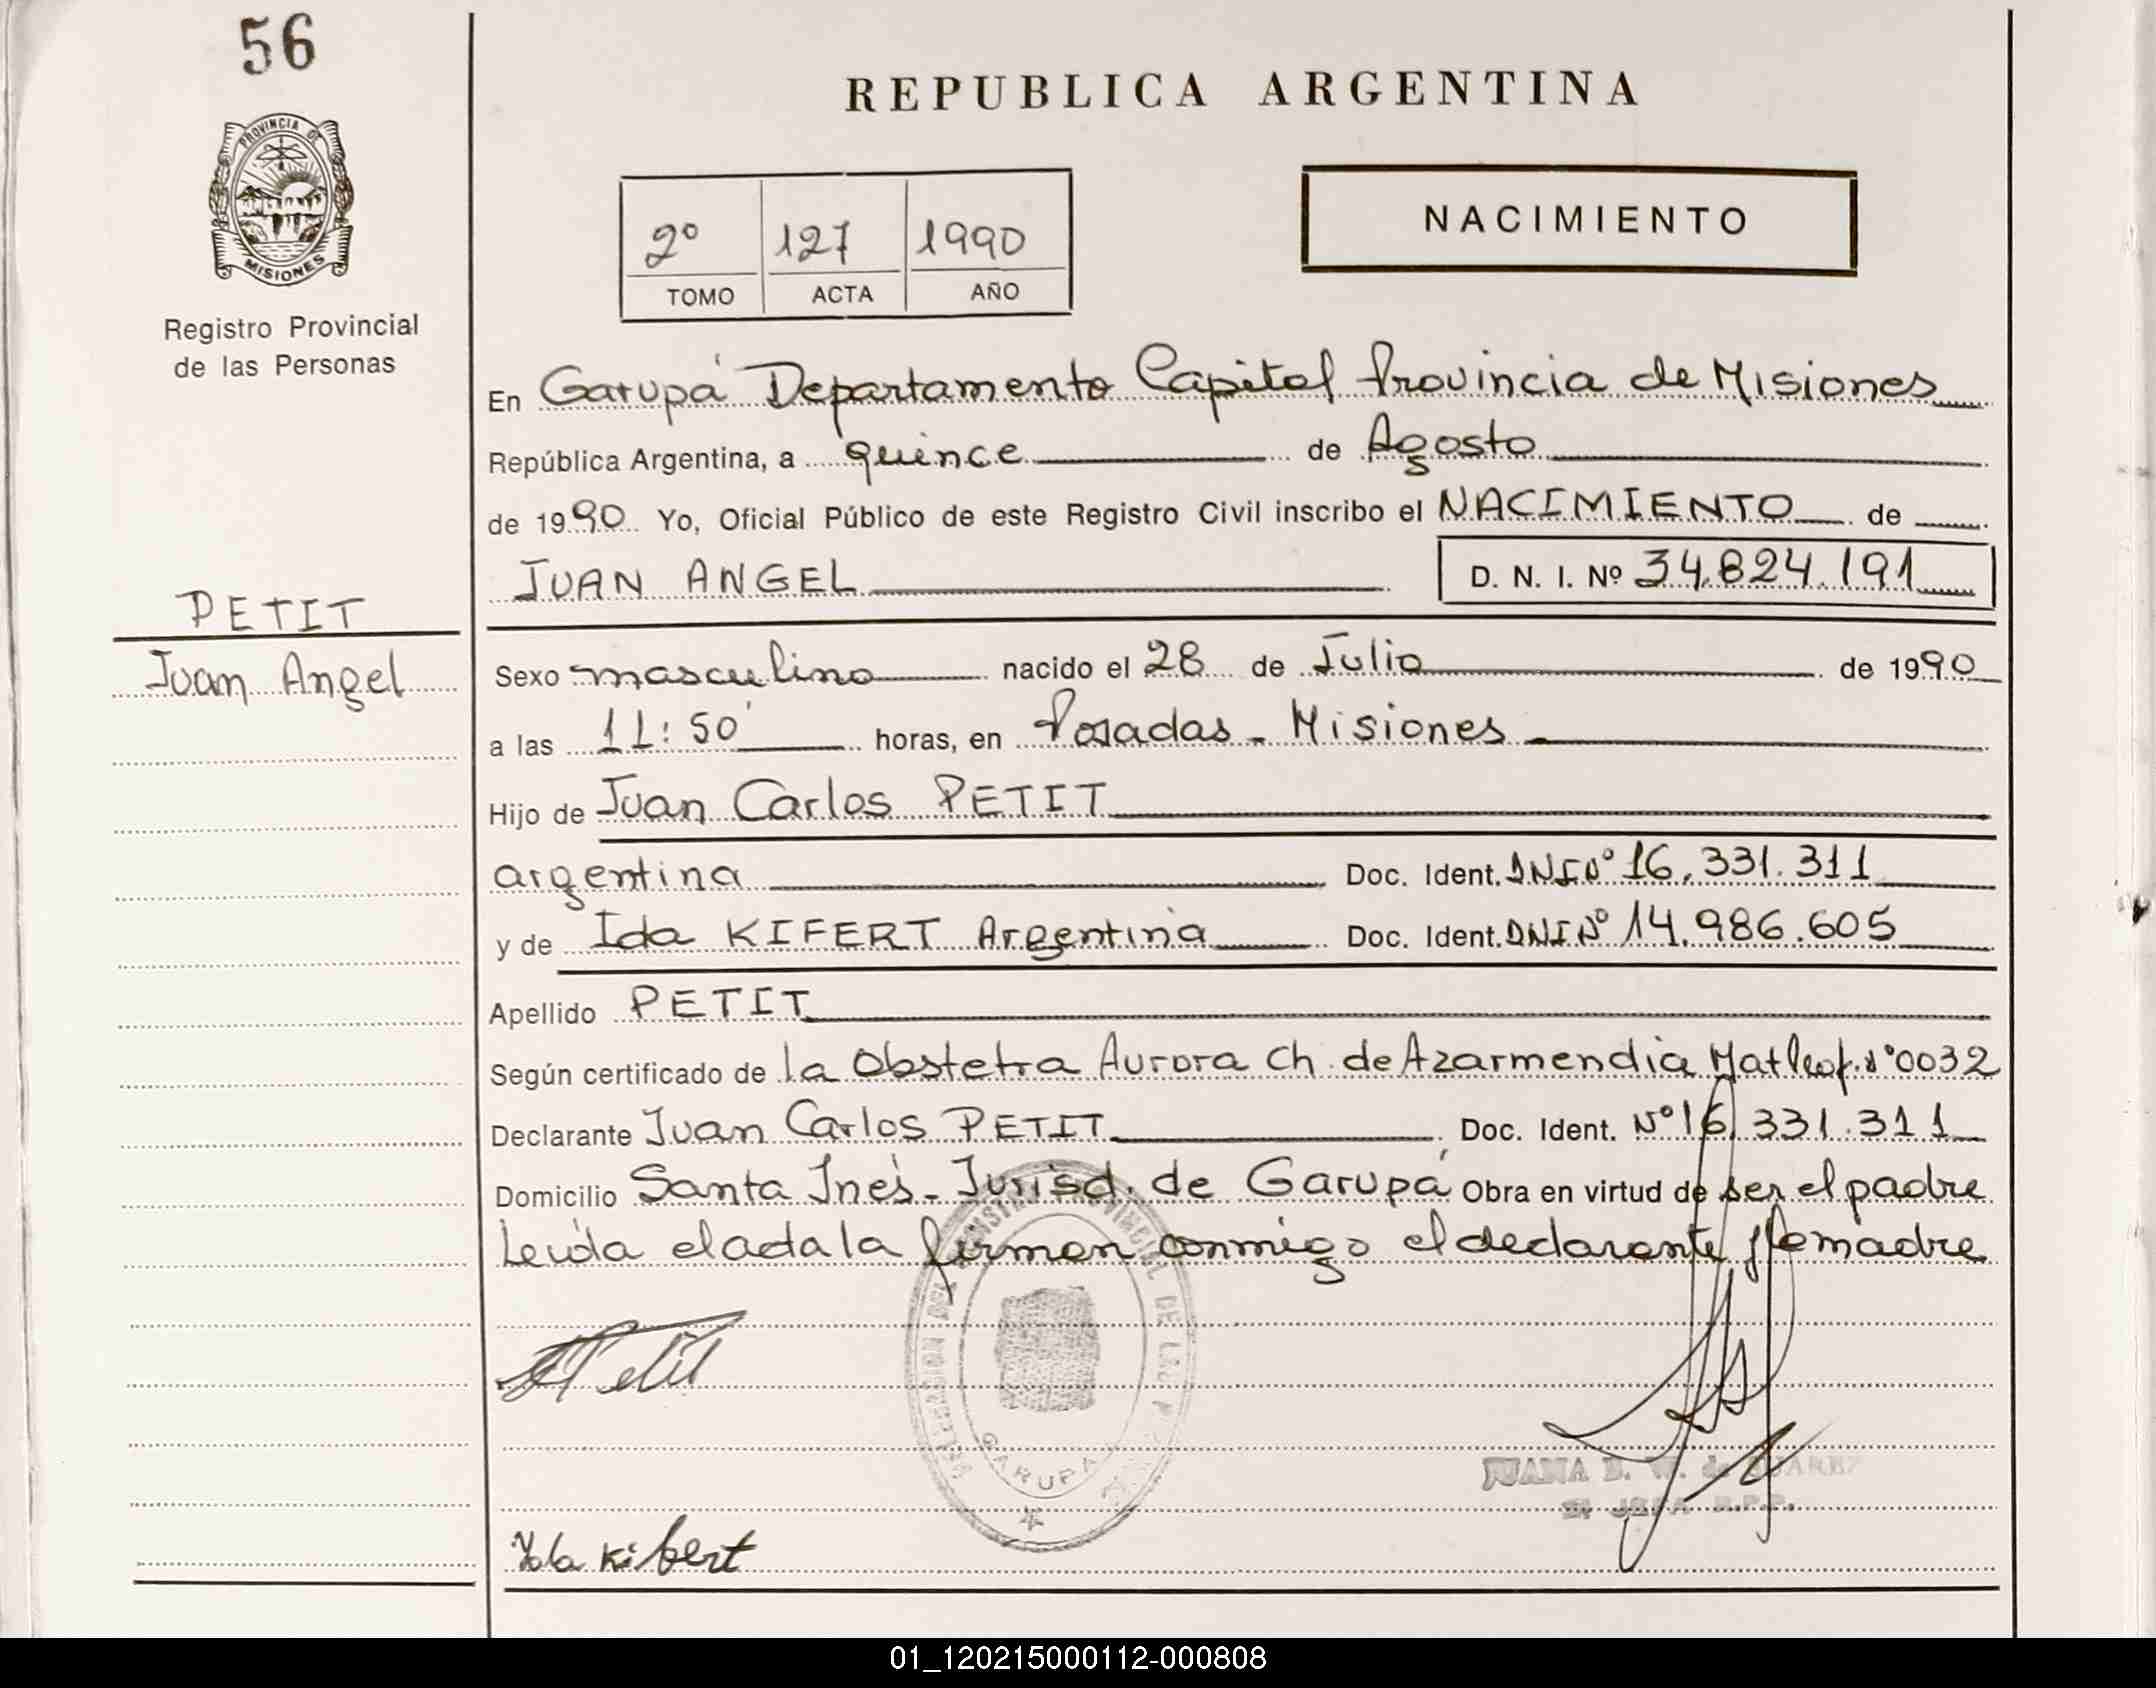 56
REPUBLICA ARGENTINA
PROVINCIA DE
MISIONES
Registro Provincial
de las Personas
2º 127 1990
TOMO ACTA AÑO
NACIMIENTO
En Garupá Departamento Capital Provincia de Misiones
República Argentina, a quince de Agosto
de 1990 Yo, Oficial Público de este Registro Civil inscribo el NACIMIENTO de
JUAN ANGEL D. N. I. Nº 34.824.191
PETIT
Juan Angel
Sexo masculino nacido el 28 de Julio de 1990
a las 11:50' horas, en Posadas - Misiones -
Hijo de Juan Carlos PETIT
argentina Doc. Ident. DNI Nº 16.331.311
y de Ida KIFERT Argentina Doc. Ident. DNI Nº 14.986.605
Apellido PETIT
Según certificado de la Obstetra Aurora Ch. de Azarmendia Mat Prof. Nº 0032
Declarante Juan Carlos PETIT Doc. Ident. Nº 16.331.311
Domicilio Santa Inés - Jurisd. de Garupá Obra en virtud de ser el padre
Leida el acta la firman conmigo el declarante y la madre
Petit
DELEGACION DEL REGISTRO PROVINCIAL DE LAS
GARUPA
JUANA E. W. de SUAREZ
JEFA R.P.P.
Ida Kibert
01_120215000112-000808